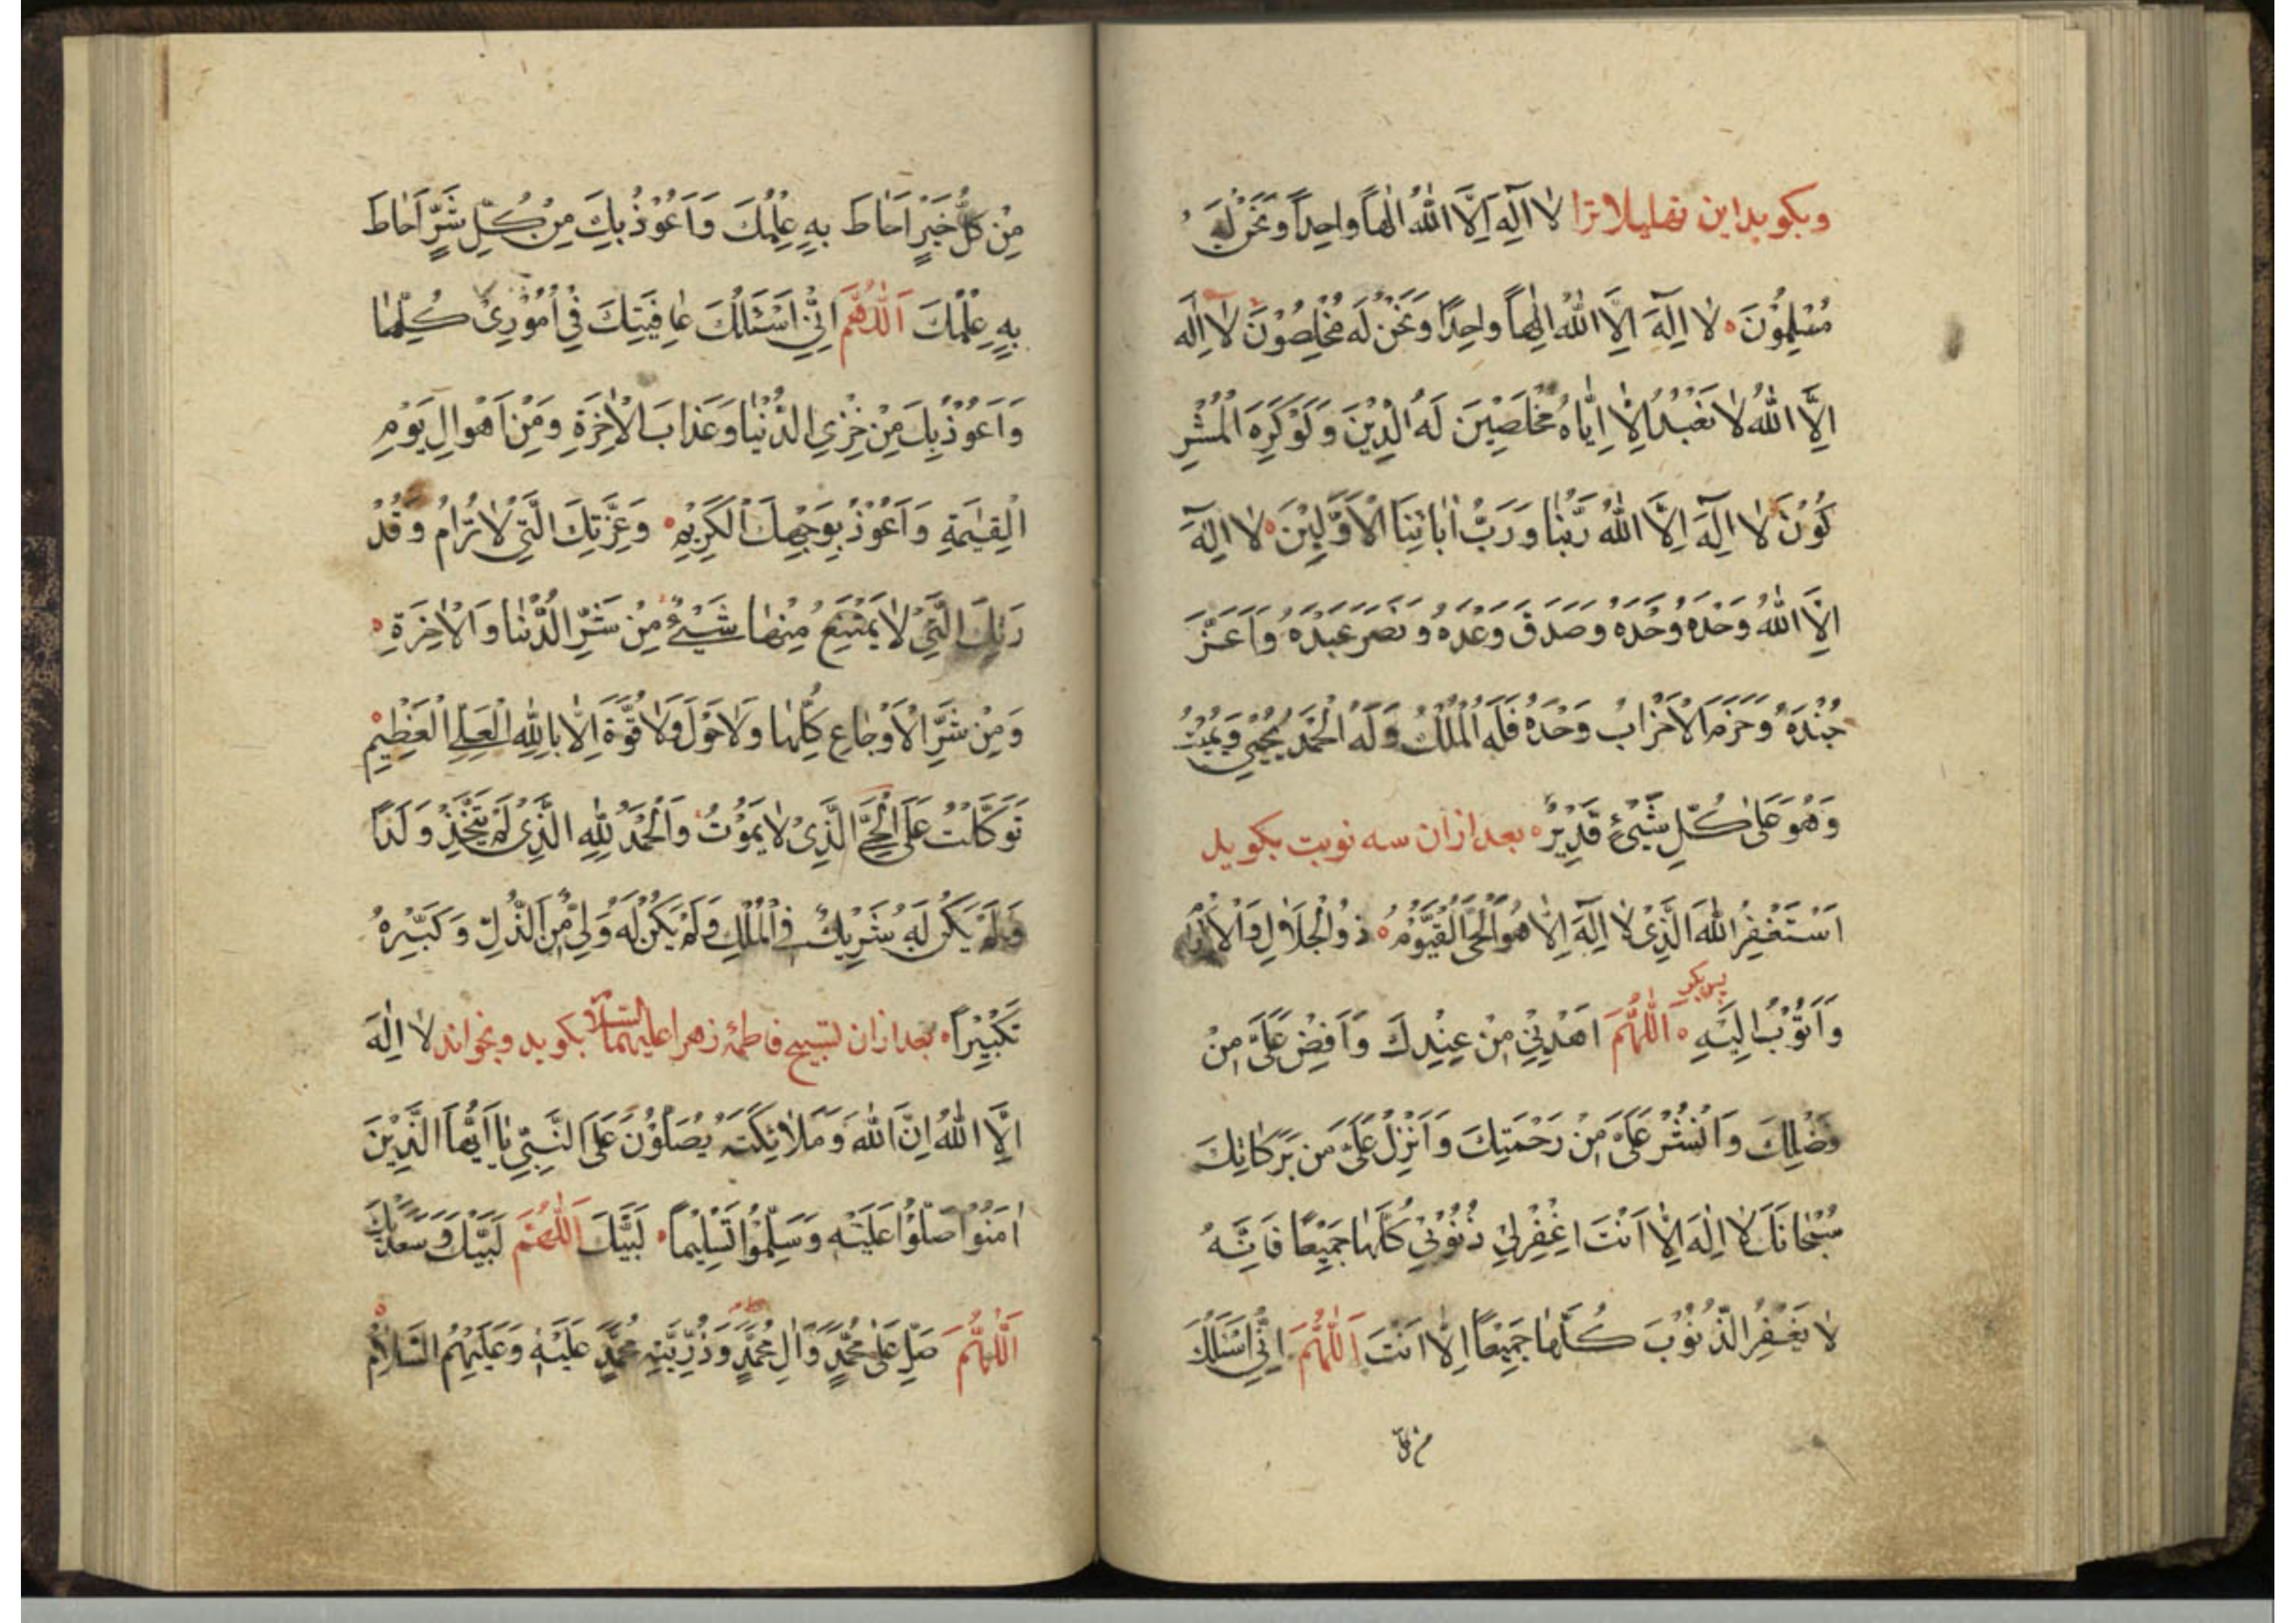 وبکوید این تهلیلات را لا اِلٰهَ اِلَّا اللّٰهُ اِلٰهاً واحِداً وَنَحْنُ لَهُ
مُسْلِمُوْنَ لا اِلٰهَ اِلَّا اللّٰهُ اِلٰهاً واحِدًا وَنَحْنُ لَه مُخْلِصُوْنَ لا اِلٰه
اِلَّا اللّٰهُ لا نَعْبُدُ اِلَّا اِيّاهُ مُخْلِصِيْنَ لَهُ الدِّيْنَ وَلَوْكَرِهَ الْمُشْرِ
كُوْنَ لا اِلٰهَ اِلَّا اللّٰهُ رَبُّنا وَرَبُّ اٰبائِنَا الْاَوَّلِيْنَ لا اِلٰهَ
اِلَّا اللّٰهُ وَحْدَهُ وَحْدَهُ وَحْدَهُ وصَدَقَ وَعْدَهُ وَنَصَرَ عَبْدَهُ وَاَعَزَّ
جُنْدَهُ وَهَزَمَ الْاَحْزابَ وَحْدَهُ فَلَهُ الْمُلْكُ وَلَهُ الْحَمْدُ يُحْيِيْ وَيُمِيْتُ
وَهُوَعَلٰى كُلِّ شَيْئٍ قَدِيْرٌ بعد ازان سه نوبت بکوید
اَسْتَغْفِرُ اللّٰهَ الَّذِىْ لا اِلٰهَ اِلَّا هُوَ الْحَىُّ الْقَيُّوْمُ ذُو الْجَلالِ وَالْاِكْرامِ
وَاَتُوْبُ اِلَيْهِ پس بکو اَللّٰهُمَّ اهْدِنِيْ مِنْ عِنْدِكَ وَاَفِضْ عَلَىَّ مِنْ
فَضْلِكَ وَانْشُرْ عَلَىَّ مِنْ رَحْمَتِكَ وَاَنْزِلْ عَلَىَّ مِنْ بَرَكاتِكَ
سُبْحانَكَ لا اِلٰهَ اِلَّا اَنْتَ اغْفِرْلِيْ ذُنُوْبِيْ كُلَّها جَمِيْعًا فَاِنَّهُ
لا يَغْفِرُ الذُّنُوْبَ كُلَّها جَمِيْعًا اِلَّا اَنْتَ اَللّٰهُمَّ اِنِّيْ اَسْئَلُكَ
من کل
مِنْ كُلِّ خَيْرٍ اَحَاطَ بِهِ عِلْمُكَ وَاَعُوْذُ بِكَ مِنْ كُلِّ شَرٍّ اَحٰاطَ
بِهِ عِلْمُكَ اَللّٰهُمَّ اِنِّيْ اَسْئَلُكَ عافِيَتِكَ فِيْ اُمُوْرِىْ كُلِّها
وَاَعُوْذُبِكَ مِنْ خِزْىِ الدُّنْيا وَعَذابَ الْاٰخِرَةِ وَمِنْ اَهْوالِ يَوْمِ
الْقِيٰمَةِ وَاَعُوْذُ بِوَجْهِكَ الْكَرِيْمِ وَعِزَّتِكَ الَّتِىْ لا تُرامُ وَقُدْ
رَتِكَ الَّتِىْ لا يَمْتَنِعُ مِنْها شَيْئٌ مِنْ شَرِّ الدُّنْيا وَالْاٰخِرَةِ
وَمِنْ شَرِّ الْاَوْجاعِ كُلِّها وَلاحَوْلَ وَلا قُوَّةَ اِلَّا بِاللّٰهِ الْعَلِىِّ الْعَظِيْمِ
تَوَكَّلْتُ عَلَى الْحَىِّ الَّذِىْ لا يَمُوْتُ وَالْحَمْدُ لِلّٰهِ الَّذِىْ لَمْ يَتَّخِذْ وَلَدًا
وَلَمْ يَكُنْ لَهُ شَرِيْكٌ فِى الْمُلْكِ وَلَمْ يَكُنْ لَهُ وَلِىٌّ مِنَ الذُّلِّ وَكَبِّرْهُ
تَكْبِيْراً بعد ازان تسبیح فاطمهٔ زهرا علیهما السلام بکوید وبخواند لا اِلٰهَ
اِلَّا اللّٰهُ اِنَّ اللّٰهَ وَمَلائِكَتَهُ يُصَلُّوْنَ عَلَى النَّبِىِّ يا اَيُّهَا الَّذِيْنَ
اٰمَنُوْا صَلُّوْا عَلَيْهِ وَسَلِّمُوْا تَسْلِيْماً لَبَّيْكَ اَللّٰهُمَّ لَبَّيْكَ وَسَعْدَيْكَ
اَللّٰهُمَّ صَلِّ عَلٰى مُحَمَّدٍ وَاٰلِ مُحَمَّدٍ وَذُرِّيَّتِهِ مُحَمَّدٍ عَلَيْهِ وَعَلَيْهِمُ السَّلامُ